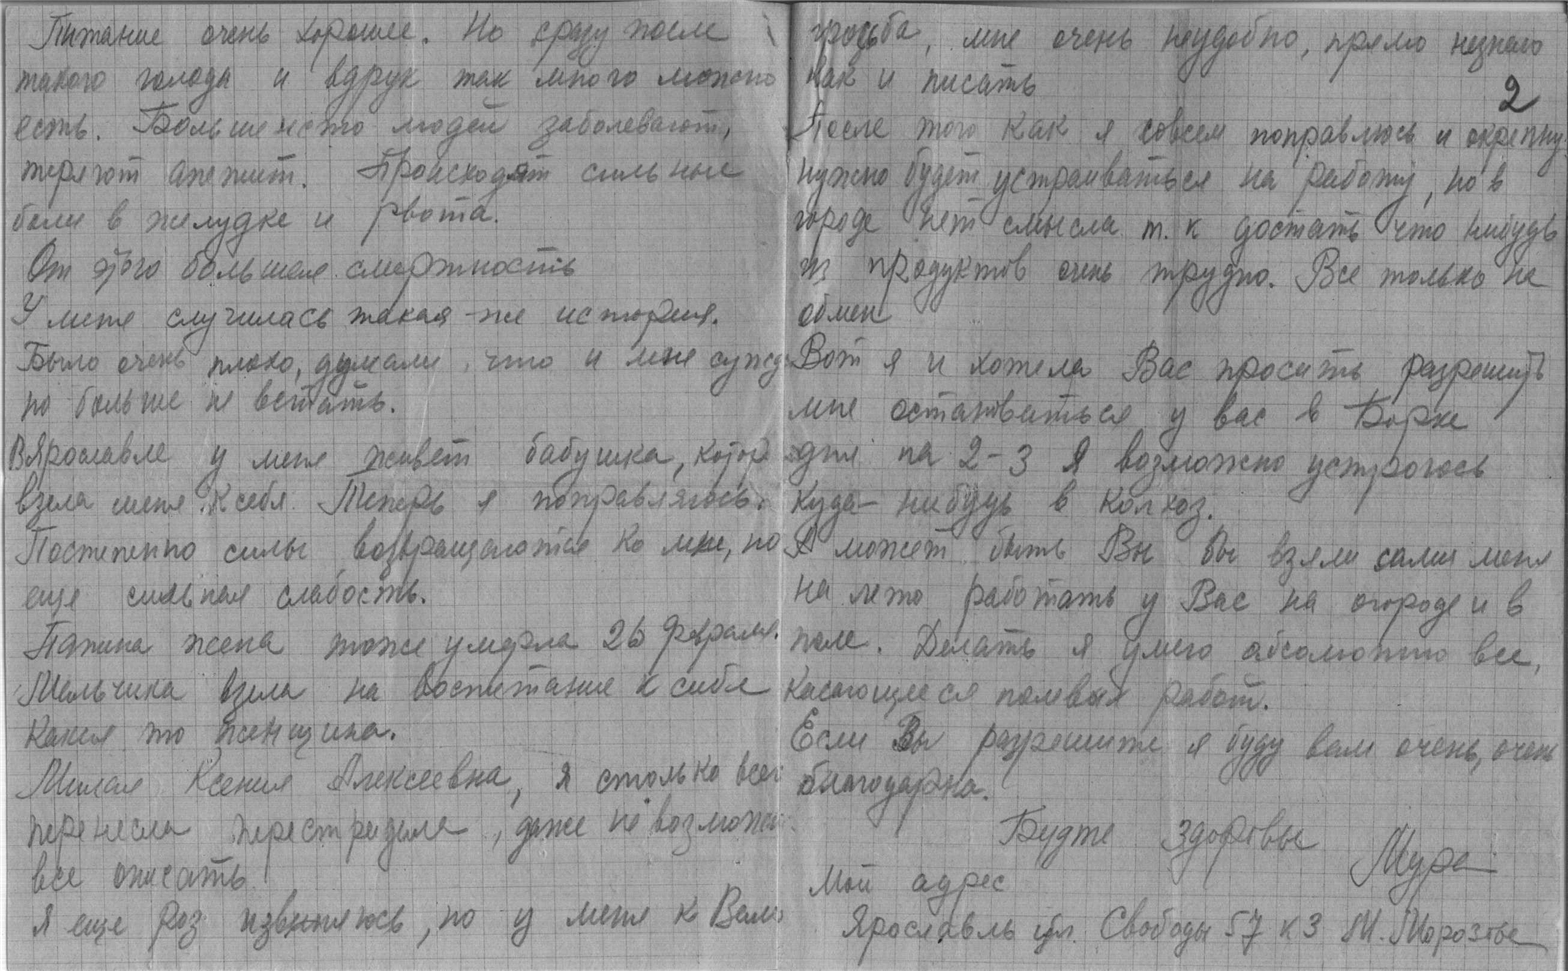 Питание очень хорошее. Но сразу после
такого голода и вдрук так много можно
есть. Большенство людей заболевают,
теряют апетит. Происходят сильные
боли в желудке и рвота.
От этого большая смертность
У меня случилась такая-же история.
Было очень плохо, думали, что и мне сужде
но больше не встать.
В Ярославле у меня живет бабушка, котор
взяла меня к себя. Теперь я поправляюсь.
Постепенно силы возвращаются ко мне, но
еще сильная слабость.
Папина жена тоже умерла 26 февраля.
Мальчика взяла на воспитание к себе
какая то женщина.
Милая Ксения Алексеевна, я столько всего
перенесла перестрадала, даже не возможно
все описать
Я еще раз извеняюсь, но у меня к Вам
2
просьба, мне очень неудобно, прямо незнаю
как и писать
После того как я совсем поправлюсь и окрепну
нужно будет устраиваться на работу, но в
городе нет смысла т. к достать что нибудь
из продуктов очень трудно. Все только на
обмен
Вот я и хотела Вас просить разрешить
мне остановиться у вас в Борке
дня на 2-3 Я возможно устроюсь
куда-нибудь в колхоз.
А может быть Вы бы взяли сами меня
на лето работать у Вас на огороде и в
поле. Делать я умею абсолютно все,
касающееся полевых работ.
Если Вы разрешите я буду вам очень, очень
благодарна.
Будте здоровы Мура
Мой адрес
Ярославль ул. Свободы 57 к 3 М. Морозова